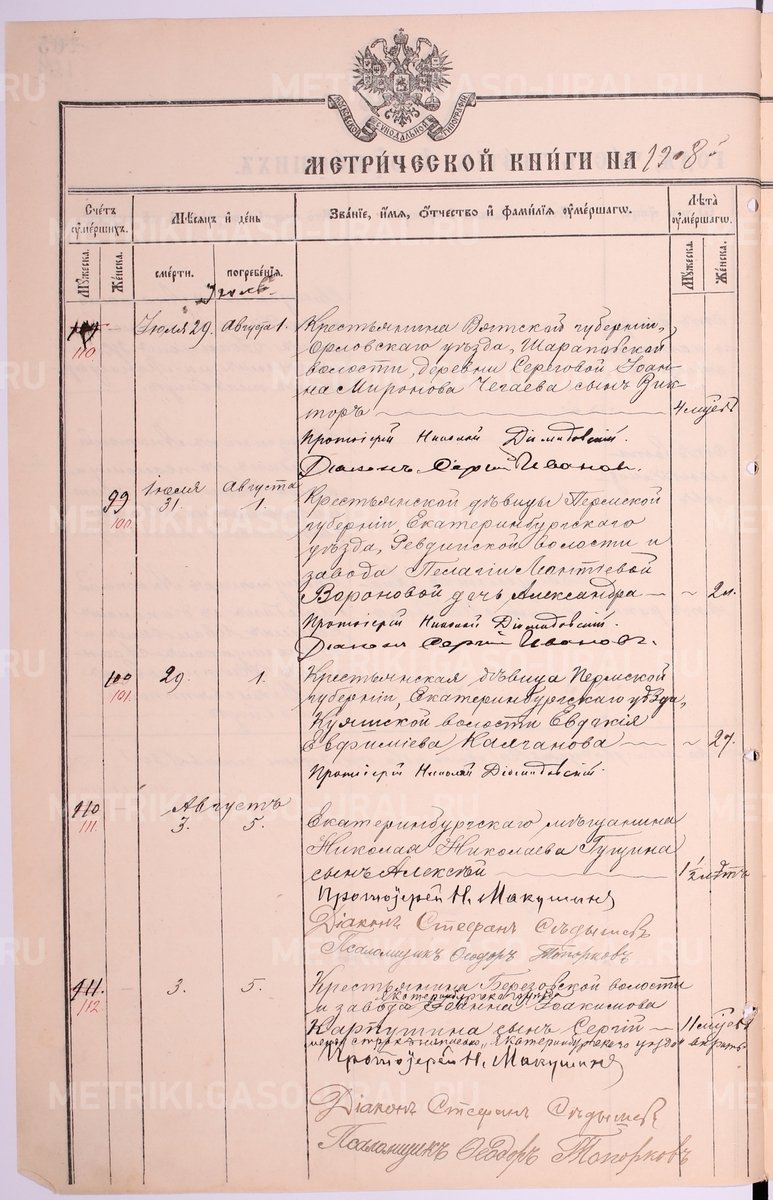 МОСКОВСКОЙ СѴНОДАЛЬНОЙ ТИПОГРАФІИ
МЕТРИ́ЧЕСКОЙ КНИ́ГИ НА 1908
Счетъ ᲂу҆ме́ршихъ.
Мѣ́сѧцъ и҆ де́нь
Зва́нїе, и҆́мѧ, ѻ҆́тчество и҆ фами́лїѧ ᲂу҆ме́ршагѡ.
Лѣ́та ᲂу҆ме́ршагѡ.
Мꙋ́жеска.
Же́нска.
сме́рти.
погребе́нїѧ.
Мꙋ́жеска.
Же́нска.
110
Іюля 29.
Августа 1.
Крестьянина Вятской губерніи,
Орловскаго уѣзда, Шараповской
волости, деревни Сереговой Іоан-
на Миронова Чегаева сынъ Вик-
торъ
4 мѣс
Протоіерей Николай Діомидовскій.
Діаконъ Сергій Ивановъ.
99
100.
Іюля 31.
Августа 1.
Крестьянской дѣвицы Пермской
губерніи, Екатеринбургскаго
уѣзда, Ревдинской волости и
завода Пелагіи Леонтіевой
Вороновой дочь Александра
2 н.
Протоіерей Николай Діомидовскій.
Діаконъ Сергій Ивановъ.
100
101.
29.
1.
Крестьянская дѣвица Пермской
губерніи, Екатеринбургскаго уѣзда,
Куяшской волости Евдокія
Евфиміева Калганова
27.
Протоіерей Николай Діомидовскій.
110
111.
Августъ
3.
5.
Екатеринбургскаго мѣщанина
Николая Николаева Гущина
сынъ Алексѣй
1 1/2 лѣтъ
Протоіерей Н. Макушинъ
Діаконъ Стефанъ Сѣдышевъ
Псаломщикъ Ѳеодоръ Топорковъ
111.
112
3.
5.
Крестьянина Березовской волости
Екатеринбургскаго уѣзда
и завода Іоанна Іоакимова
Карпушина сынъ Сергій
11 мѣс
между строкъ написано "Екатеринбургскаго уѣзда" вѣрить
Протоіерей Н. Макушинъ
Діаконъ Стефанъ Сѣдышевъ
Псаломщикъ Ѳеодоръ Топорковъ
METRIKI.GASO-URAL.RU